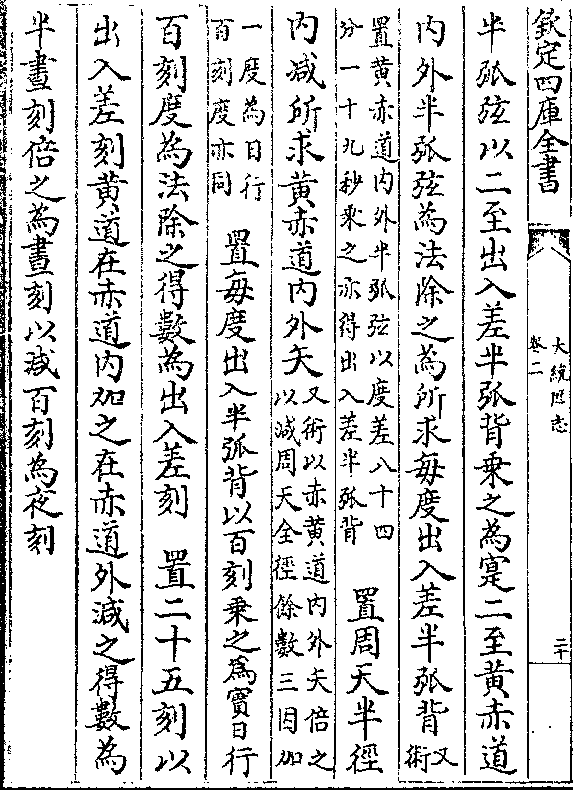 欽定四庫全書
大統厯志
卷二
二十
半弧弦以二至出入差半弧背乗之為寔二至黄赤道
内外半弧弦為法除之為所求每度出入差半弧背又術
置黄赤道内外半弧弦以度差八十四
分一十九秒乗之亦得出入差半弧背
置周天半徑
内减所求黄赤道内外矢
又術以赤黄道内外矢倍之
以减周天全徑餘數三因加
一度為日行
百刻度亦同
置每度出入半弧背以百刻乗之為實日行
百刻度為法除之得數為出入差刻 置二十五刻以
出入差刻黄道在赤道内加之在赤道外減之得數為
半晝刻倍之為晝刻以减百刻為夜刻